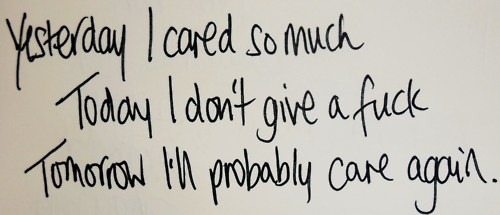 Yesterday I cared so much
Today I don't give a fuck
Tomorrow I'll probably care again.